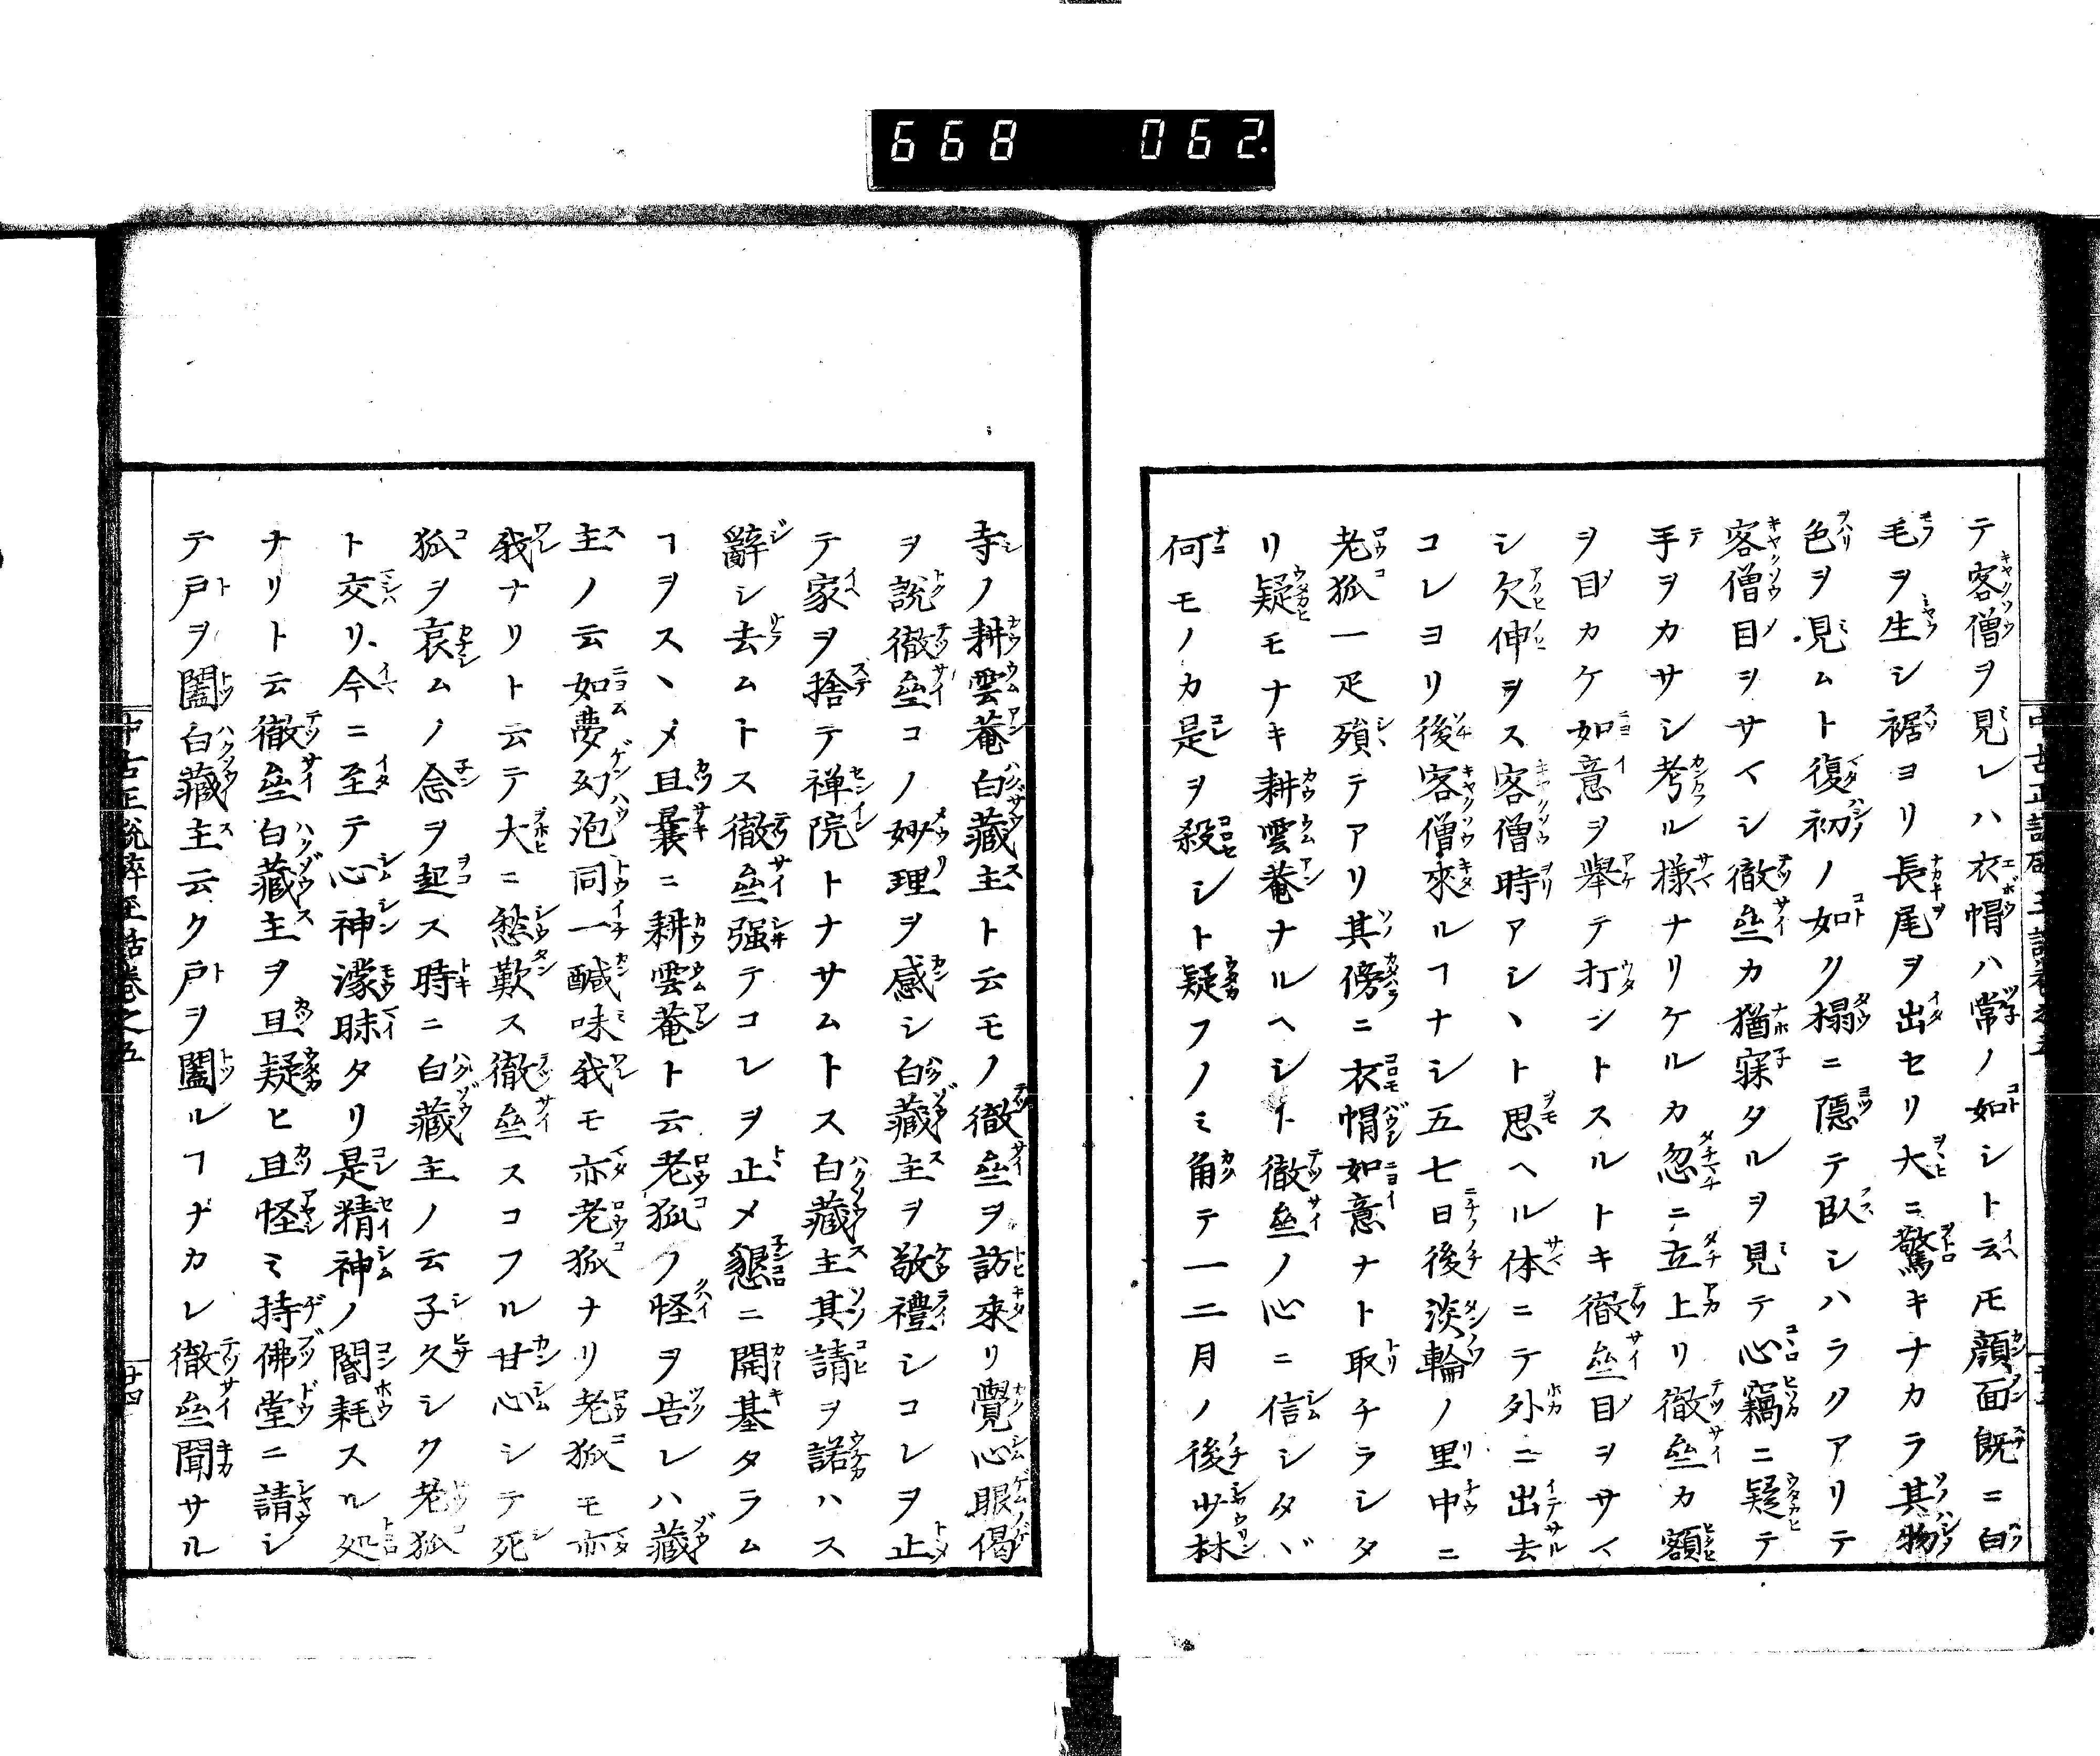 668 062.
テ客僧ヲ見レハ衣帽ハ常ノ如シト云ヘ𪜈顔面既ニ白
毛ヲ生シ裾ヨリ長尾ヲ出セリ大ニ驚キナカラ其物
色ヲ見ムト復初ノ如ク榻ニ隠テ臥シハラクアリテ
客僧目ヲサイシ徹㘴カ猶寐タルヲ見テ心竊ニ疑テ
手ヲカサシ考ル様ナリケルカ忽ニ立上リ徹㘴カ額
ヲ目カケ如意ヲ舉テ打ントスルトキ徹㘴目ヲサイ
シ欠伸ヲス客僧時アシヽト思ヘル体ニテ外ニ出去
コレヨリ後客僧來ルヿナシ五七日後淡輪ノ里中ニ
老狐一疋殞テアリ其傍ニ衣帽如意ナト取チラシタ
リ疑モナキ耕雲菴ナルヘシト徹㘴ノ心ニ信シタバ
何モノカ是ヲ殺シト疑フノミ角テ一二月ノ後少林
寺ノ耕雲菴白藏主ト云モノ徹㘴ヲ訪來リ覺心眼偈
ヲ説徹㘴コノ妙理ヲ感シ白藏主ヲ敬禮シコレヲ止
テ家ヲ捨テ禅院トナサムトス白藏主其請ヲ諾ハス
辭シ去ムトス徹㘴强テコレヲ止メ懇ニ開基タラム
ヿヲスヽメ且曩ニ耕雲菴ト云老狐ノ怪ヲ告レハ藏
主ノ云如夢幻泡同一鹹味我モ亦老狐ナリ老狐モ亦
我ナリト云テ大ニ愁歎ス徹㘴スコフル甘心シテ死
狐ヲ哀ムノ念ヲ起ス時ニ白藏主ノ云子久シク老狐
ト交リ今ニ至テ心神濛昧タリ是精神ノ閽耗スル処
ナリト云徹㘴白藏主ヲ且疑ヒ且怪ミ持佛堂ニ請シ
テ戸ヲ闔白藏主云ク戸ヲ闔ルヿナカレ徹㘴聞サル